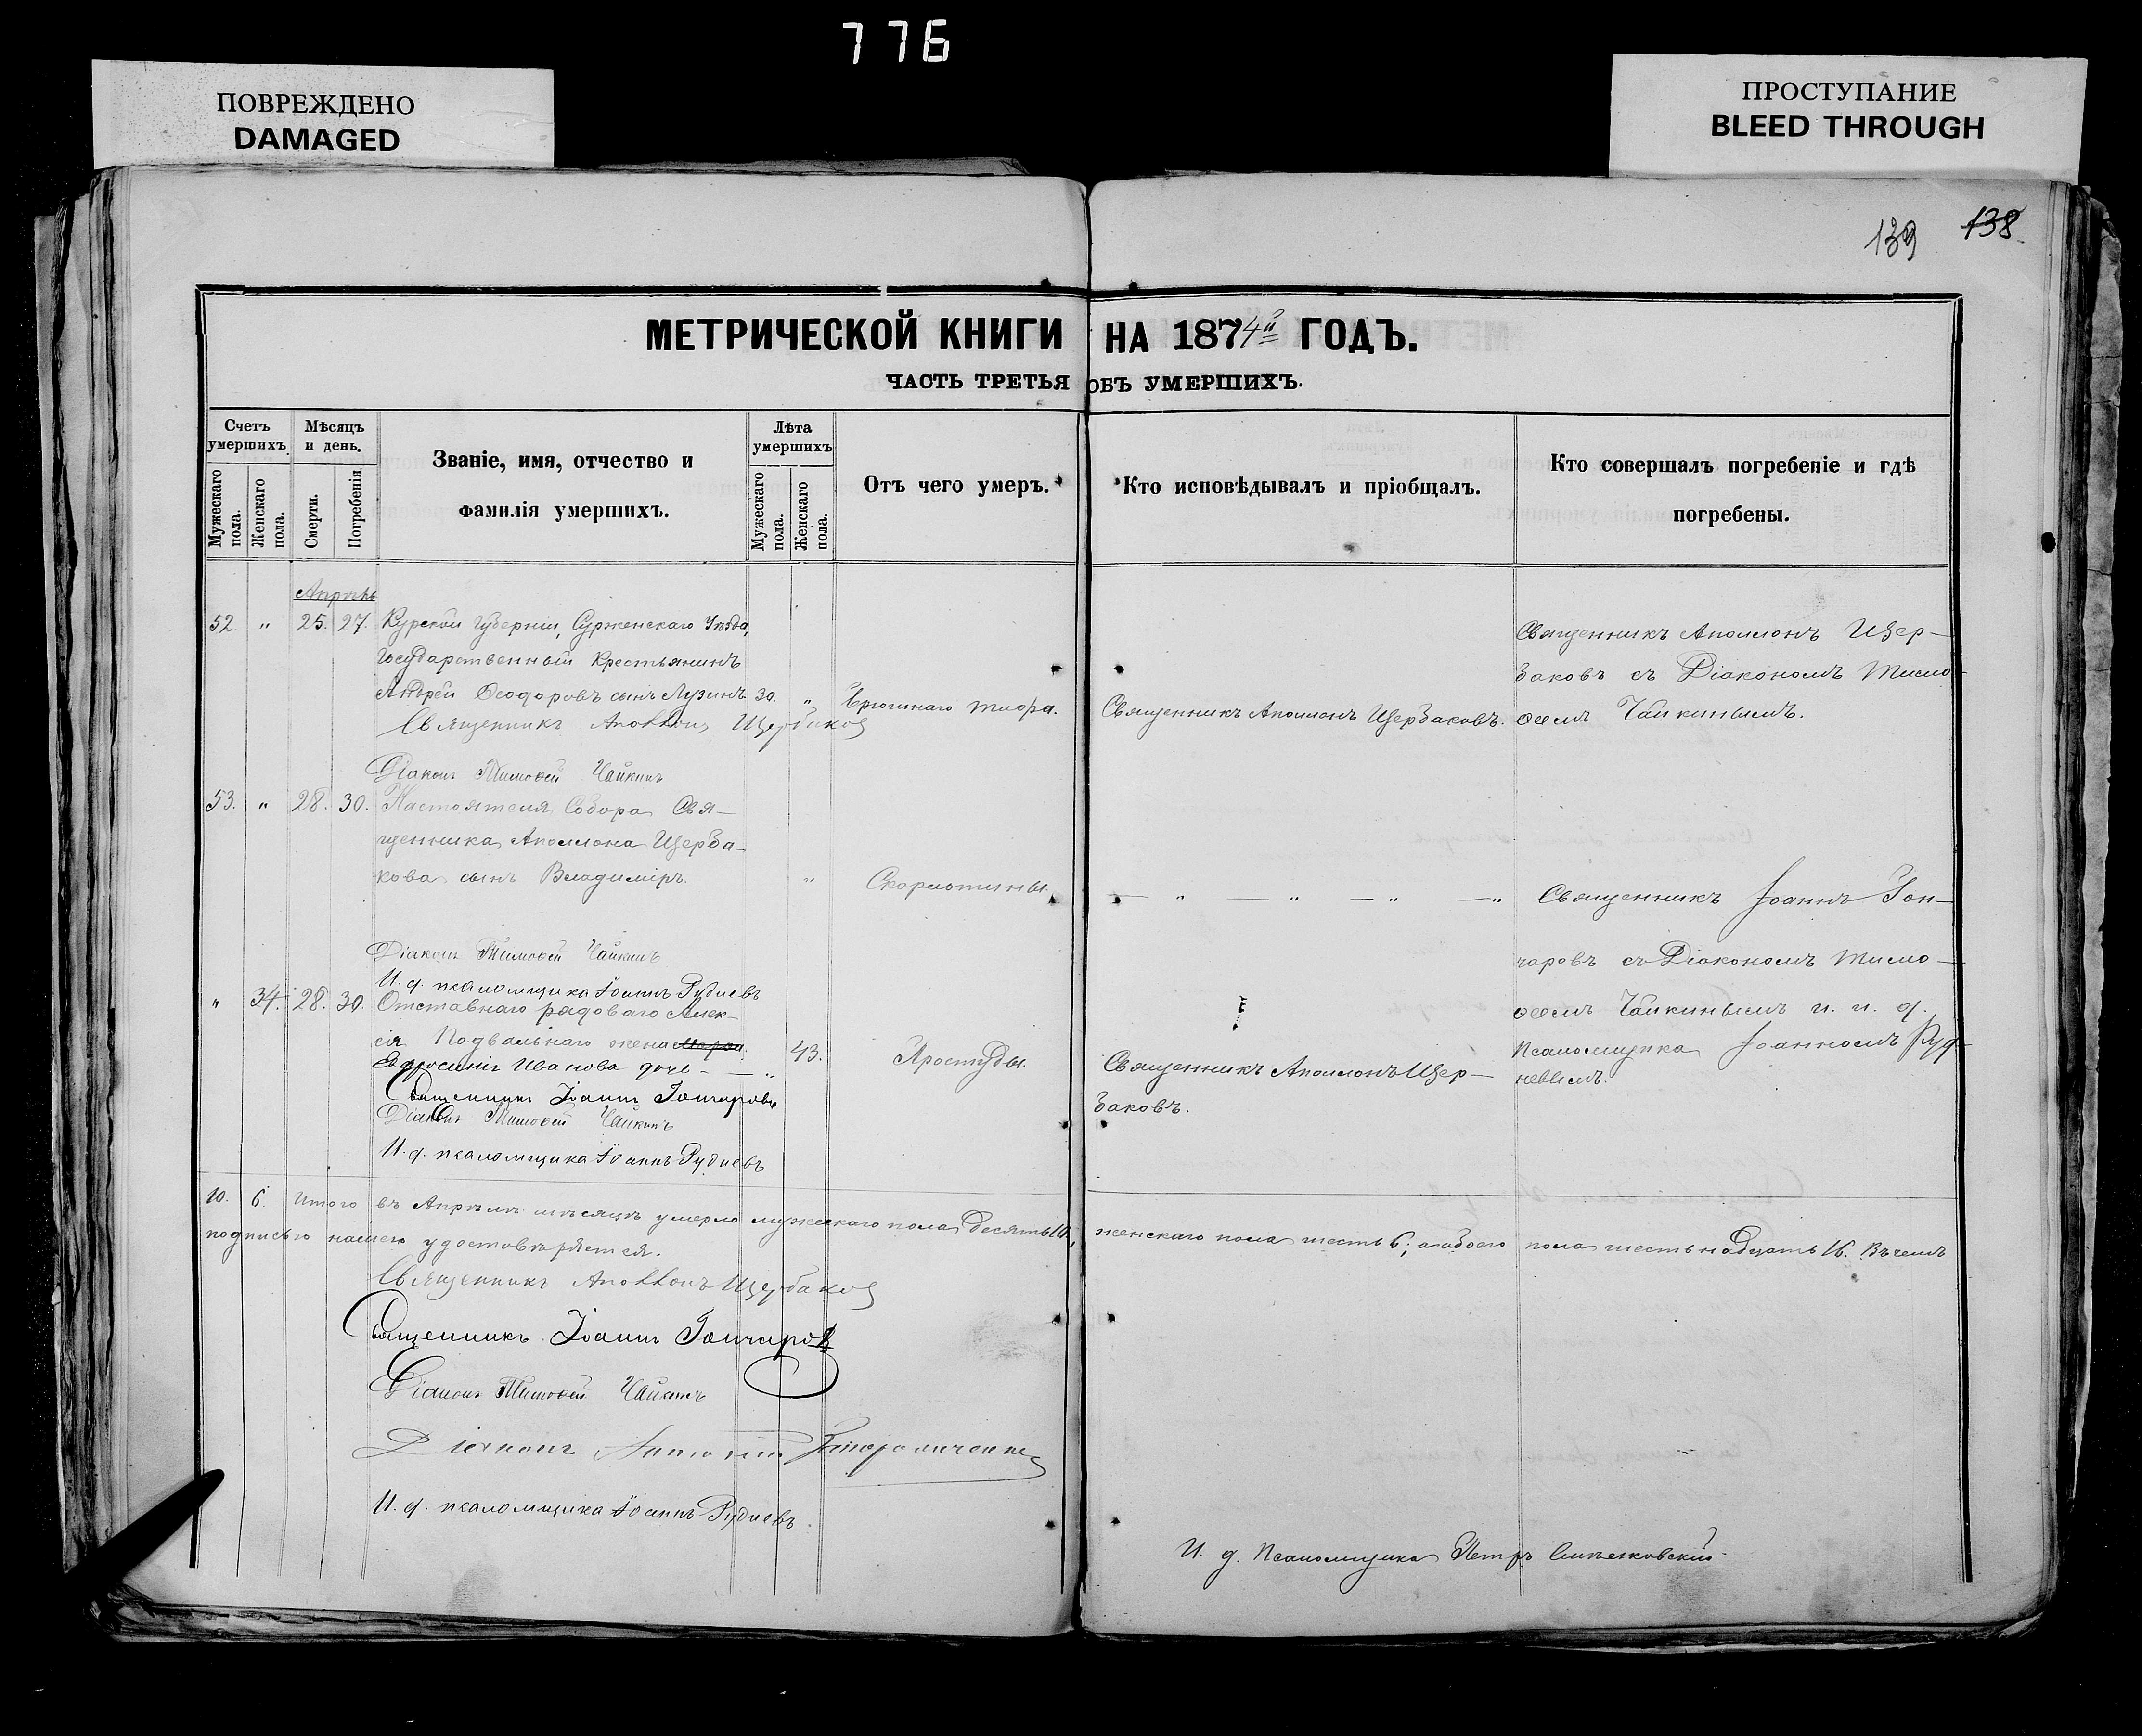 776
ПОВРЕЖДЕНО
DAMAGED
ПРОСТУПАНИЕ
BLEED THROUGH
139 138
МЕТРИЧЕСКОЙ КНИГИ НА 1874й ГОДЪ.
ЧАСТЬ ТРЕТЬЯ ОБЪ УМЕРШИХЪ.
Счетъ умершихъ.
Мужескаго пола.
Женскаго пола.
Мѣсяцъ и день.
Смерти.
Погребенія.
Званіе, имя, отчество и
фамилія умершихъ.
Лѣта умершихъ
Мужескаго пола.
Женскаго пола.
Отъ чего умеръ.
Кто исповѣдывалъ и пріобщалъ.
Кто совершалъ погребеніе и гдѣ
погребены.
Апрѣль
52. " 25. 27. Курской Губерніи, Сурженскаго Уѣзда,
Государственный Крестьянинъ
Андрей Ѳеодоровъ сынъ Лузинъ 30. " Брюшнаго тифа.
Священникъ Аполлонъ Щербаковъ.
Священникъ Аполлонъ Щер-
баковъ съ Діакономъ Тимо-
ѳеемъ Чайкинымъ.
Священникъ Аполлонъ Щербаковъ
Діаконъ Тимоѳей Чайкинъ
53. " 28. 30. Настоятеля Собора Свя-
щенника Аполлона Щерба-
кова сынъ Владиміръ. " Скарлотины.
— " — " — " — "
Священникъ Іоаннъ Гон-
чаровъ съ Діакономъ Тимо-
ѳеемъ Чайкинымъ и и. д.
Псаломщика Іоанномъ Руд-
невымъ.
Діаконъ Тимоѳей Чайкинъ
И. д. псаломщика Іоаннъ Рудневъ
" 34. 28. 30. Отставнаго рядоваго Алек-
сія Подвальнаго жена
Евфросинія Иванова дочь - — " 43. Простуды.
Священникъ Аполлонъ Щер-
баковъ.
Священникъ Іоаннъ Гончаровъ
Діаконъ Тимоѳей Чайкинъ
И. д. псаломщика Іоаннъ Рудневъ
10. 6. Итого въ Апрѣлѣ мѣсяцѣ умерло мужескаго пола десять 10, женскаго пола шесть 6; а обоего пола шестьнадцать 16. Въ чемъ
подписью нашею удостовѣряется.
Священникъ Аполлонъ Щербаковъ
Священникъ Іоаннъ Гончаровъ
Діаконъ Тимоѳей Чайкинъ
Діаконъ Антоній
И. д. псаломщика Іоаннъ Рудневъ
И. д. Псаломщика Петръ